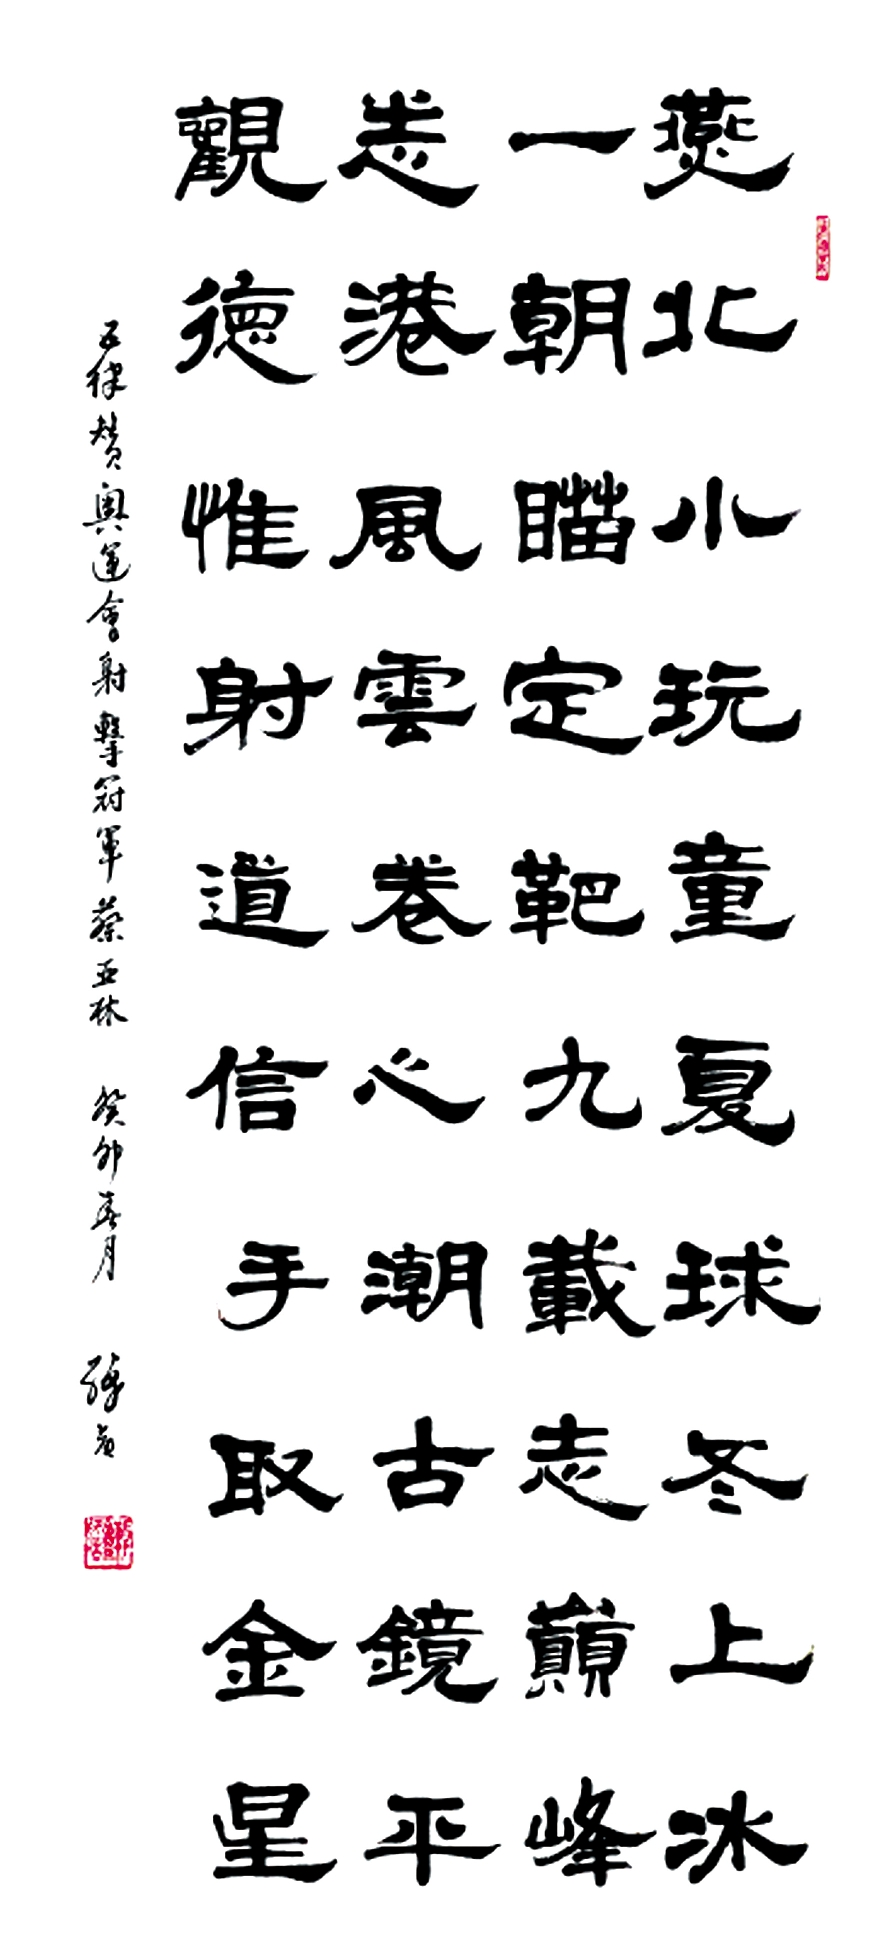 燕北小玩童夏球冬上冰
一朝瞄定靶九載志巔峰
悉港風雲卷心潮古鏡平
觀德惟射道信手取金星
五律赞奧運會射擊冠軍蔡亚林 癸卯春月